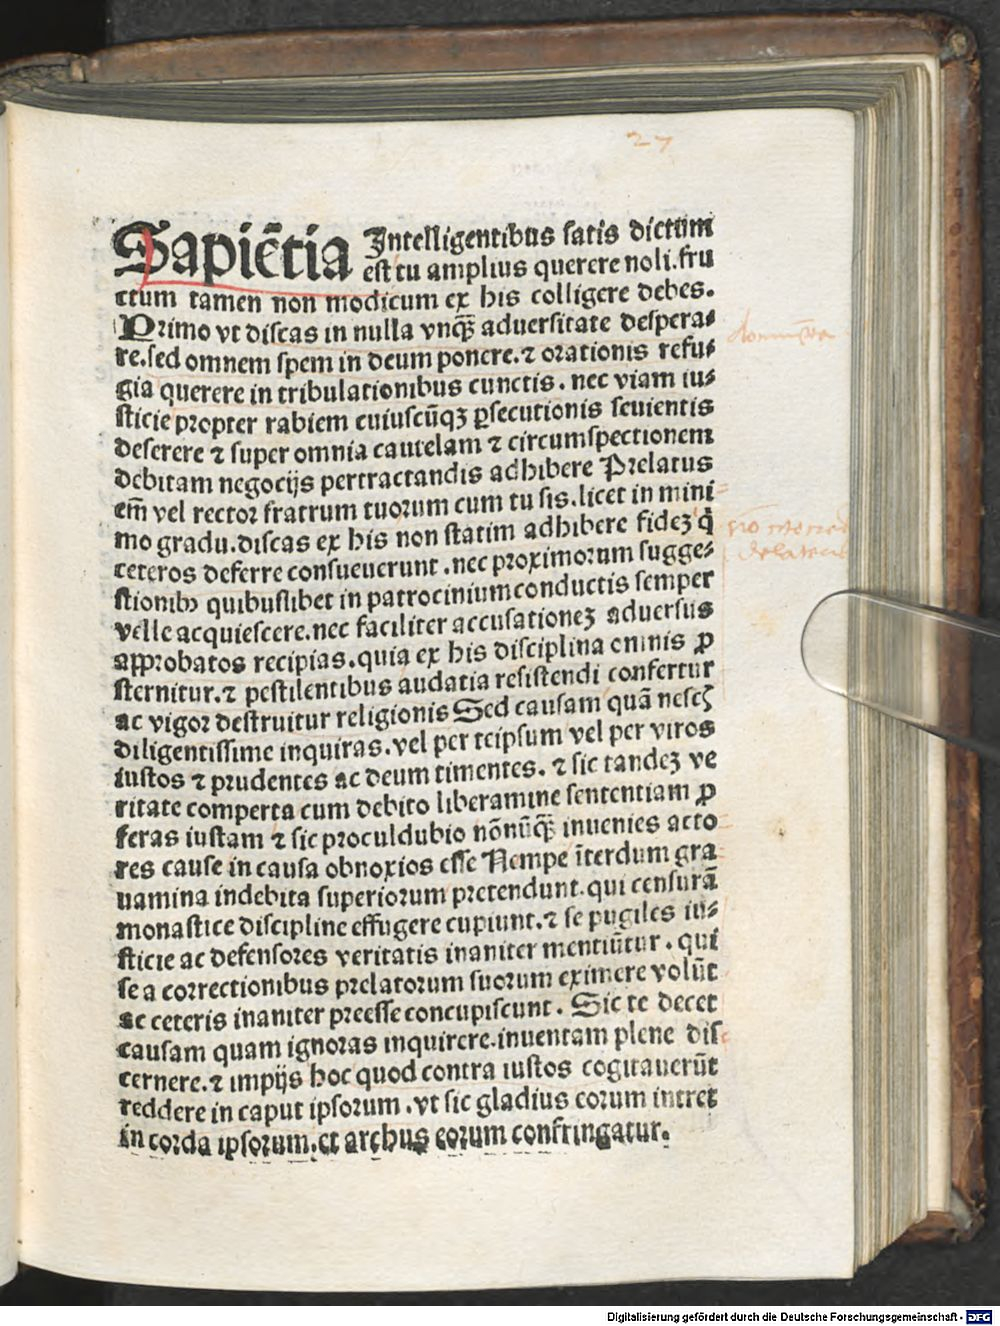 27
Sapiẽtia Intelligentibus satis dictum
est tu amplius querere noli. fru
ctum tamen non modicum ex his colligere debes.
Primo vt discas in nulla vnqȝ̃ aduersitate despera⸗
re. sed omnem spem in deum ponere. ⁊ orationis refu⸗
gia querere in tribulationibus cunctis. nec viam iu⸗
sticie propter rabiem cuiuscũqȝ ꝑsecutionis seuientis
deserere ⁊ super omnia cautelam ⁊ circumspectionem
debitam negocijs pertractandis adhibere Prelatus
em̃ vel rector fratrum tuorum cum tu sis. licet in mini
mo gradu. discas ex his non statim adhibere fideȝ q̇
ceteros deferre consueuerunt. nec proximorum sugge⸗
stionibꝰ quibuslibet in patrocinium conductis semper
velle acquiescere. nec faciliter accusationeȝ aduersus
approbatos recipias. quia ex his disciplina omnis ꝓ
sternitur. ⁊ pestilentibus audatia resistendi confertur
ac vigor destruitur religionis Sed causam quã nescꝭ
diligentissime inquiras. vel per teipsum vel per viros
iustos ⁊ prudentes ac deum timentes. ⁊ sic tandeȝ ve
ritate comperta cum debito liberamine sententiam ꝓ
feras iustam ⁊ sic proculdubio nõnũqȝ̃ inuenies acto
res cause in causa obnoxios esse Nempe ĩterdum gra
uamina indebita superiorum pretendunt. qui censurã
monastice discipline effugere cupiunt. ⁊ se pugiles iu⸗
sticie ac defensores veritatis inaniter mentiũtur. qui
se a correctionibus prelatorum suorum eximere volũt
ac ceteris inaniter preesse concupiscunt. Sic te decet
causam quam ignoras inquirere. inuentam plene dis
cernere. ⁊ impijs hoc quod contra iustos cogitauerũt
reddere in caput ipsorum. vt sic gladius eorum intret
in corda ipsorum. et archus eorum confringatur.
Digitalisierung gefördert durch die Deutsche Forschungsgemeinschaft - DFG